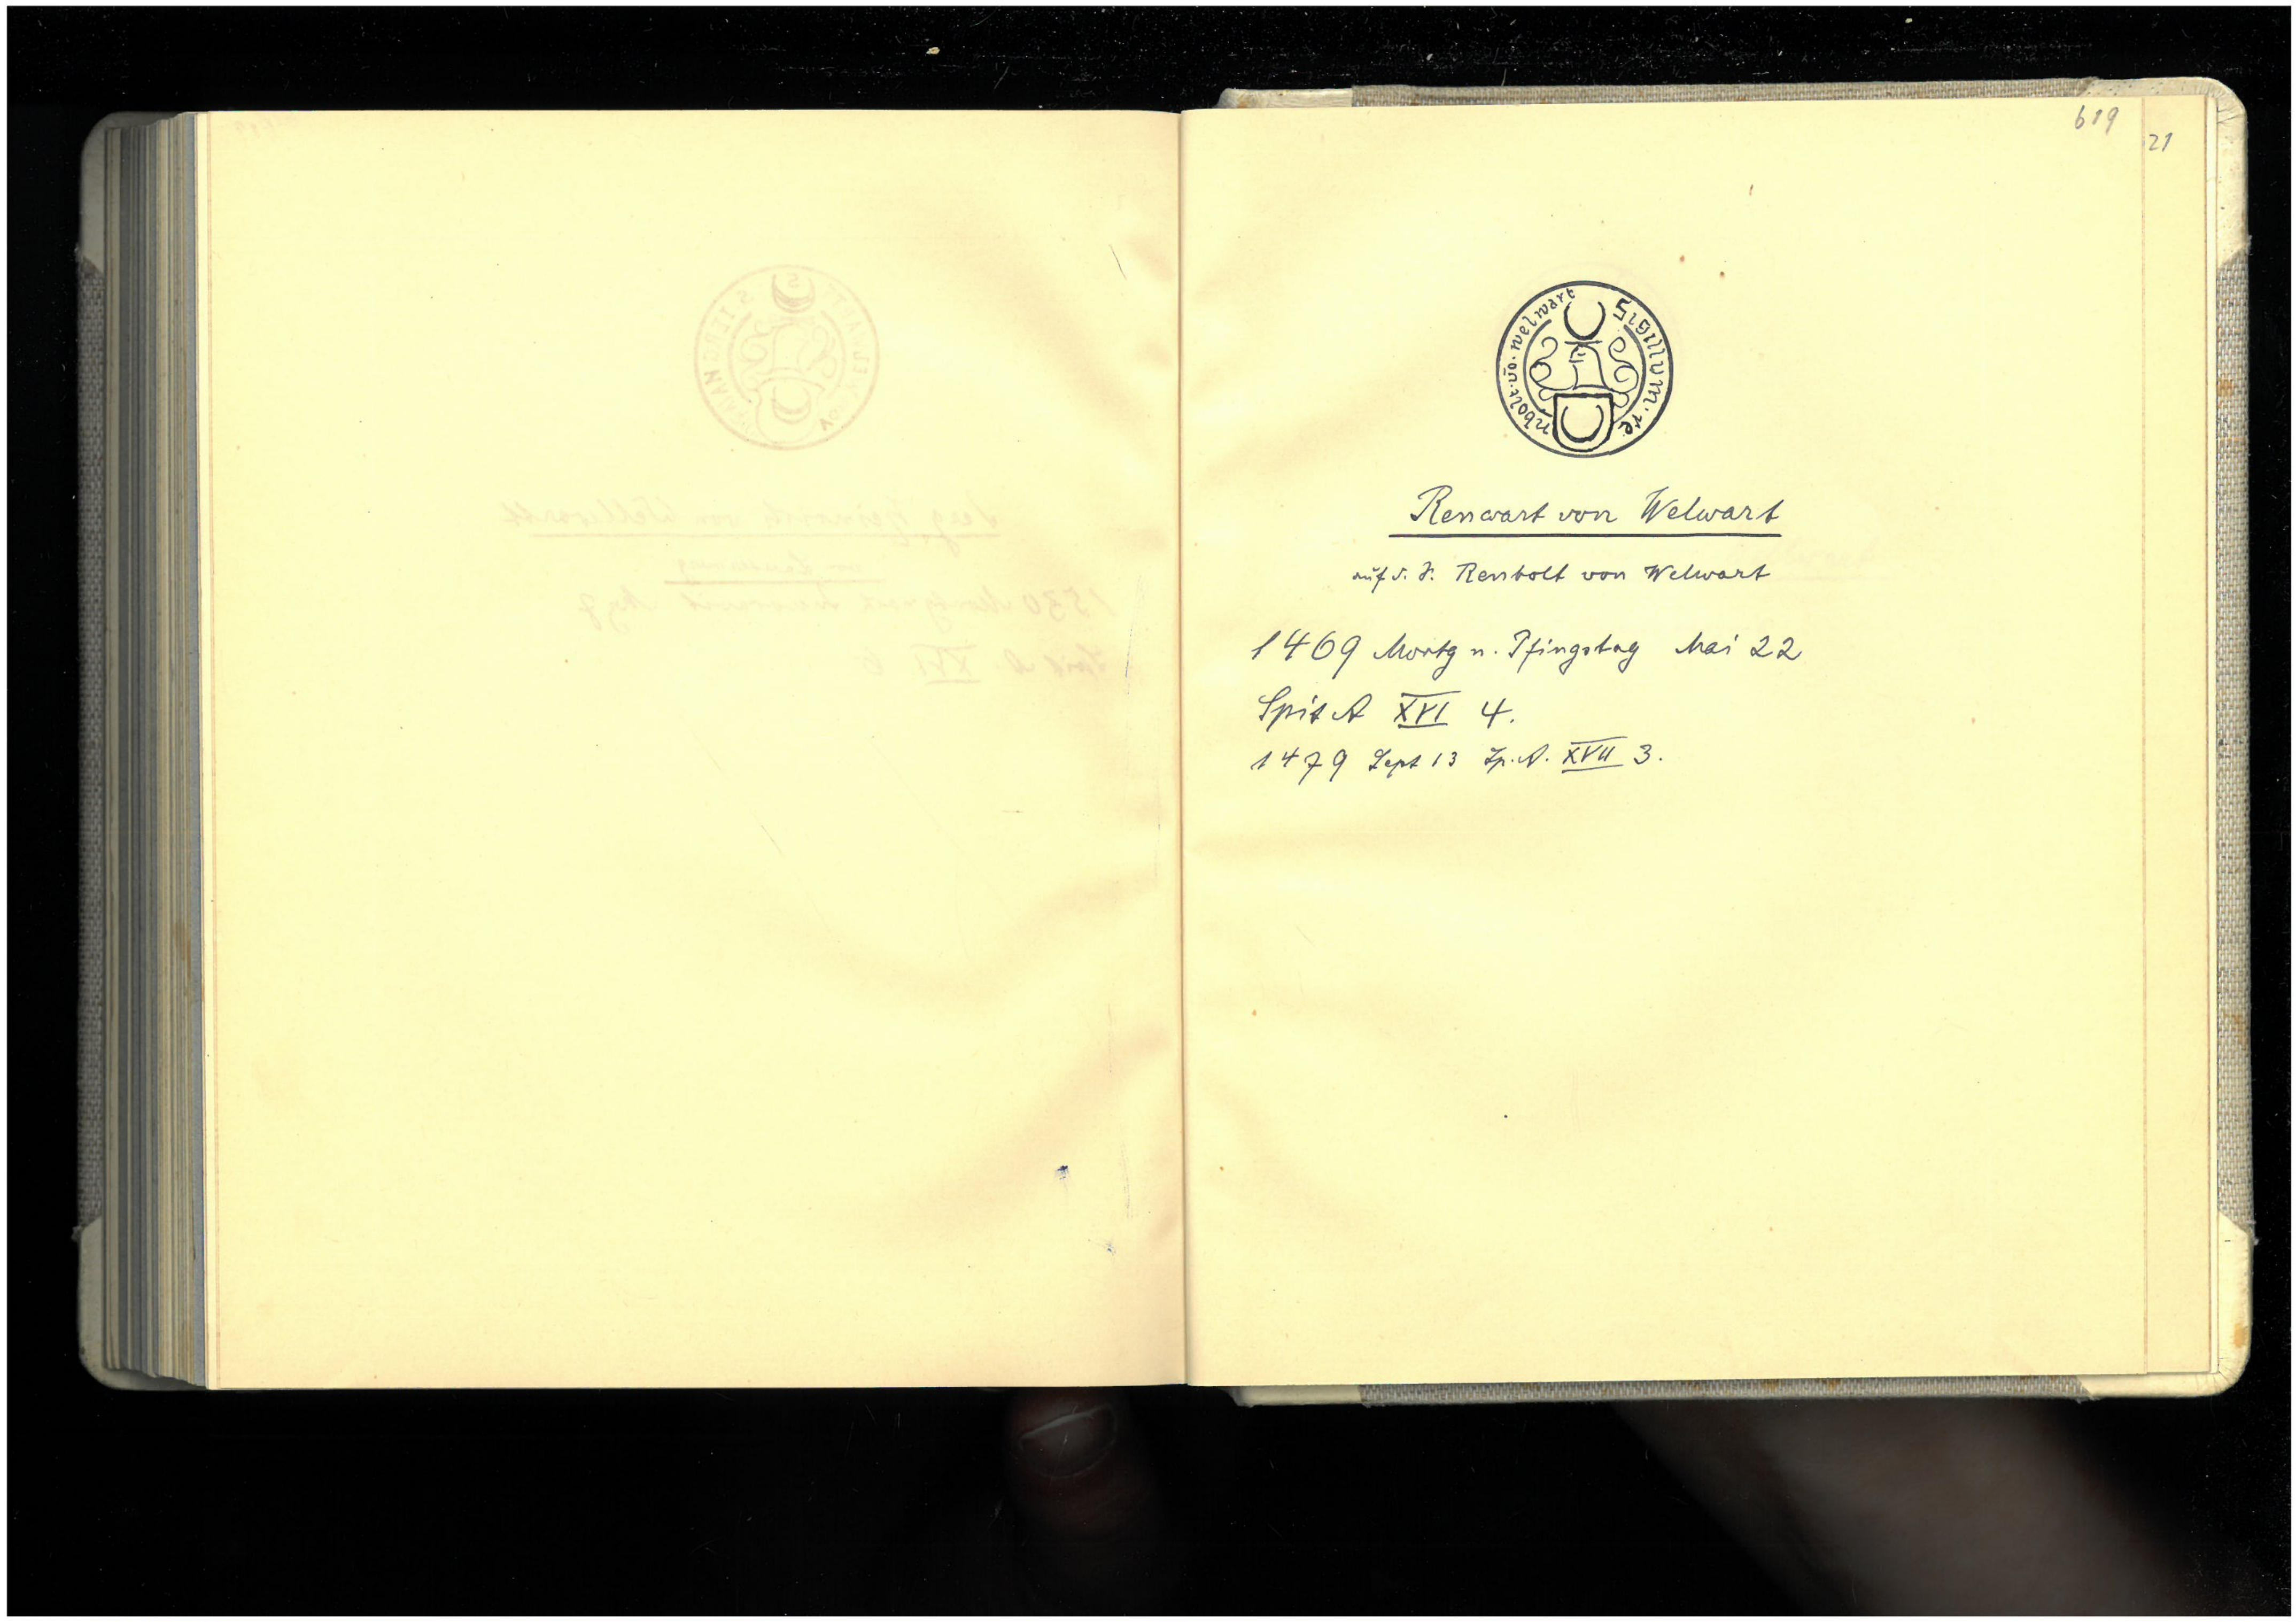 619
21
Sigillum · re
nbolt · vō · welwart
Renwart von Welwart
auf d. S. Renbolt von Welwart
1469 Montg n. Pfingstag Mai 22
Spit A XVI 4.
1479 Sept 13 Sp. A. XVII 3.